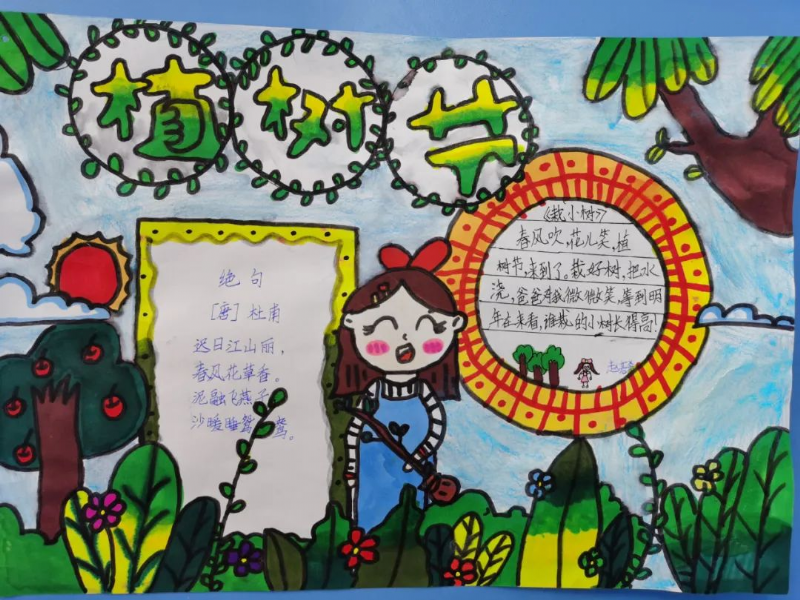 植树节
绝句
[唐] 杜甫
迟日江山丽，
春风花草香。
泥融飞燕子
沙暖睡鸳鸯。
《栽小树》
春风吹，花儿笑，植
树节，来到了。栽好树，把水
浇，爸爸对我微微笑，等到明
年再来看，谁栽的小树长得高！